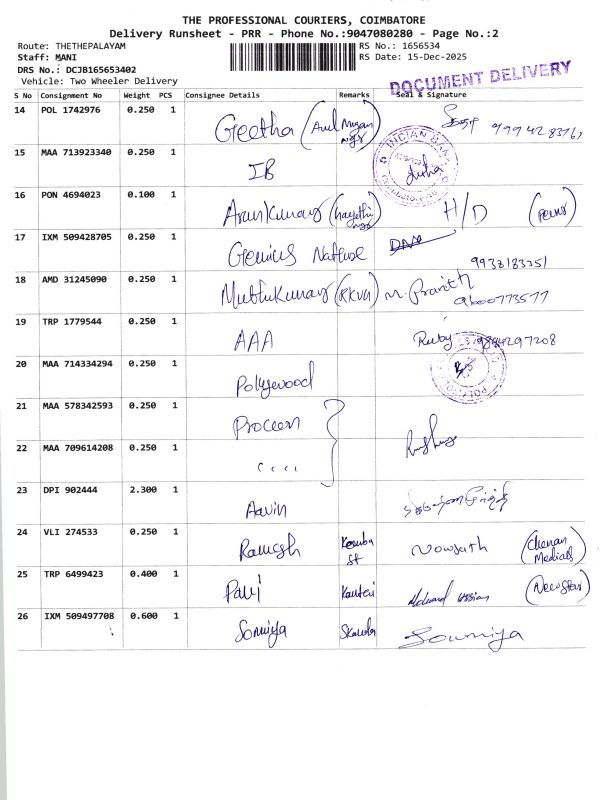 THE PROFESSIONAL COURIERS, COIMBATORE
Delivery Runsheet - PRR - Phone No.:9047080280 - Page No.:2
Route: THETHEPALAYAM
RS No.: 1656534
Staff: MANI
RS Date: 15-Dec-2025
DRS No.: DCJB165653402
Vehicle: Two Wheeler Delivery
DOCUMENT DELIVERY
S No Consignment No Weight PCS Consignee Details Remarks Seal & Signature
14 POL 1742976 0.250 1 Geetha (Arul Nagar
15 MAA 713923340 0.250 1 IB INDIAN BANK
16 PON 4694023 0.100 1 Arunkumar (Gayathri H/D
17 IXM 509428705 0.250 1 Genius
18 AMD 31245090 0.250 1 Muthukumar (RKVG) M. Pravith
9600773577
19 TRP 1779544 0.250 1 AAA Ruby 9884297208
20 MAA 714334294 0.250 1 Pollywood
21 MAA 578342593 0.250 1 Proceen
22 MAA 709614208 0.250 1 " "
23 DPI 902444 2.300 1 Aavin
24 VLI 274533 0.250 1 Ramesh Nowsath (Chenan
Medicals)
25 TRP 6499423 0.400 1
26 IXM 509497708 0.600 1 Somiya Soumiya